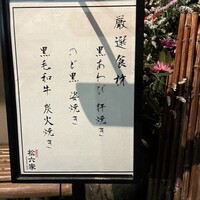 厳選食材
黒あわび 酒焼き
のど黒 姿焼き
黒毛和牛 炭火焼き
松六家